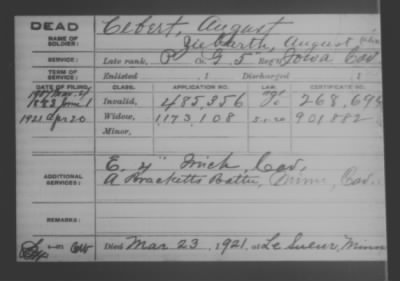 DEAD
NAME OF SOLDIER: Cebert, August
Ziebarth, August
SERVICE: Late rank, P Co. G, 5" Reg't Iowa Cav
TERM OF SERVICE: Enlisted , 1 Discharged , 1
DATE OF FILING. CLASS. APPLICATION NO. LAW. CERTIFICATE NO.
Invalid, 485,356 268,694
1921 Apr 20 Widow, 1,173,108 901882
Minor,
ADDITIONAL SERVICES: E. 4" Mich. Cav.
A Bracketts Battn, Minn, Cav.
REMARKS:
Died Mar 23, 1921, at Le Sueur, Minn